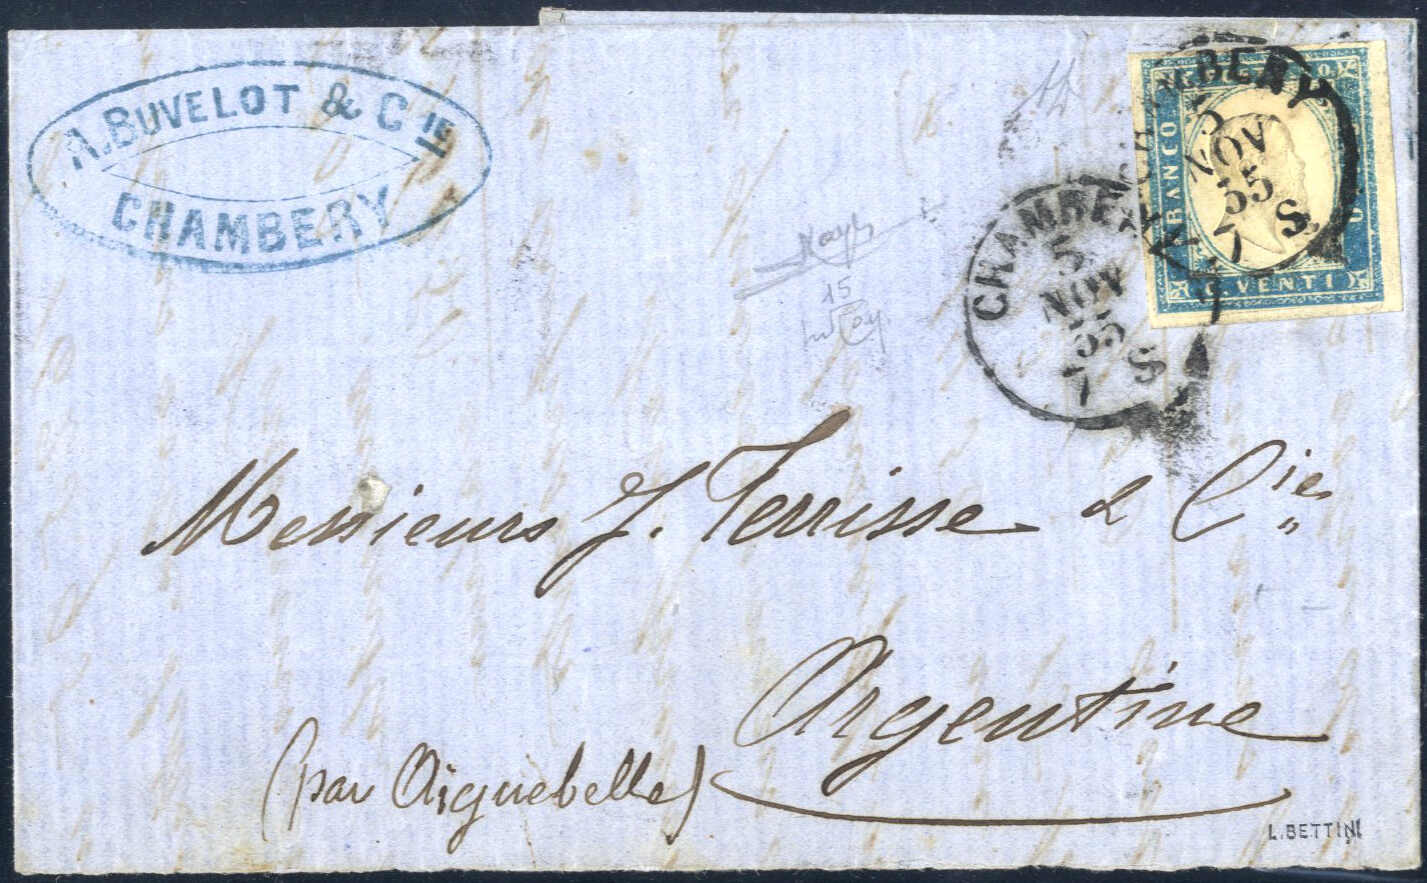 A. BUVELOT & CIE
CHAMBERY
FRANCO
C. VENTI
CHAMBERY
5
NOV
55
7 S
CHAMBERY
5
NOV
55
7 S
15
Messieurs J. Terrisse & Cie
Argentine
(par Aiguebelle)
L. BETTINI